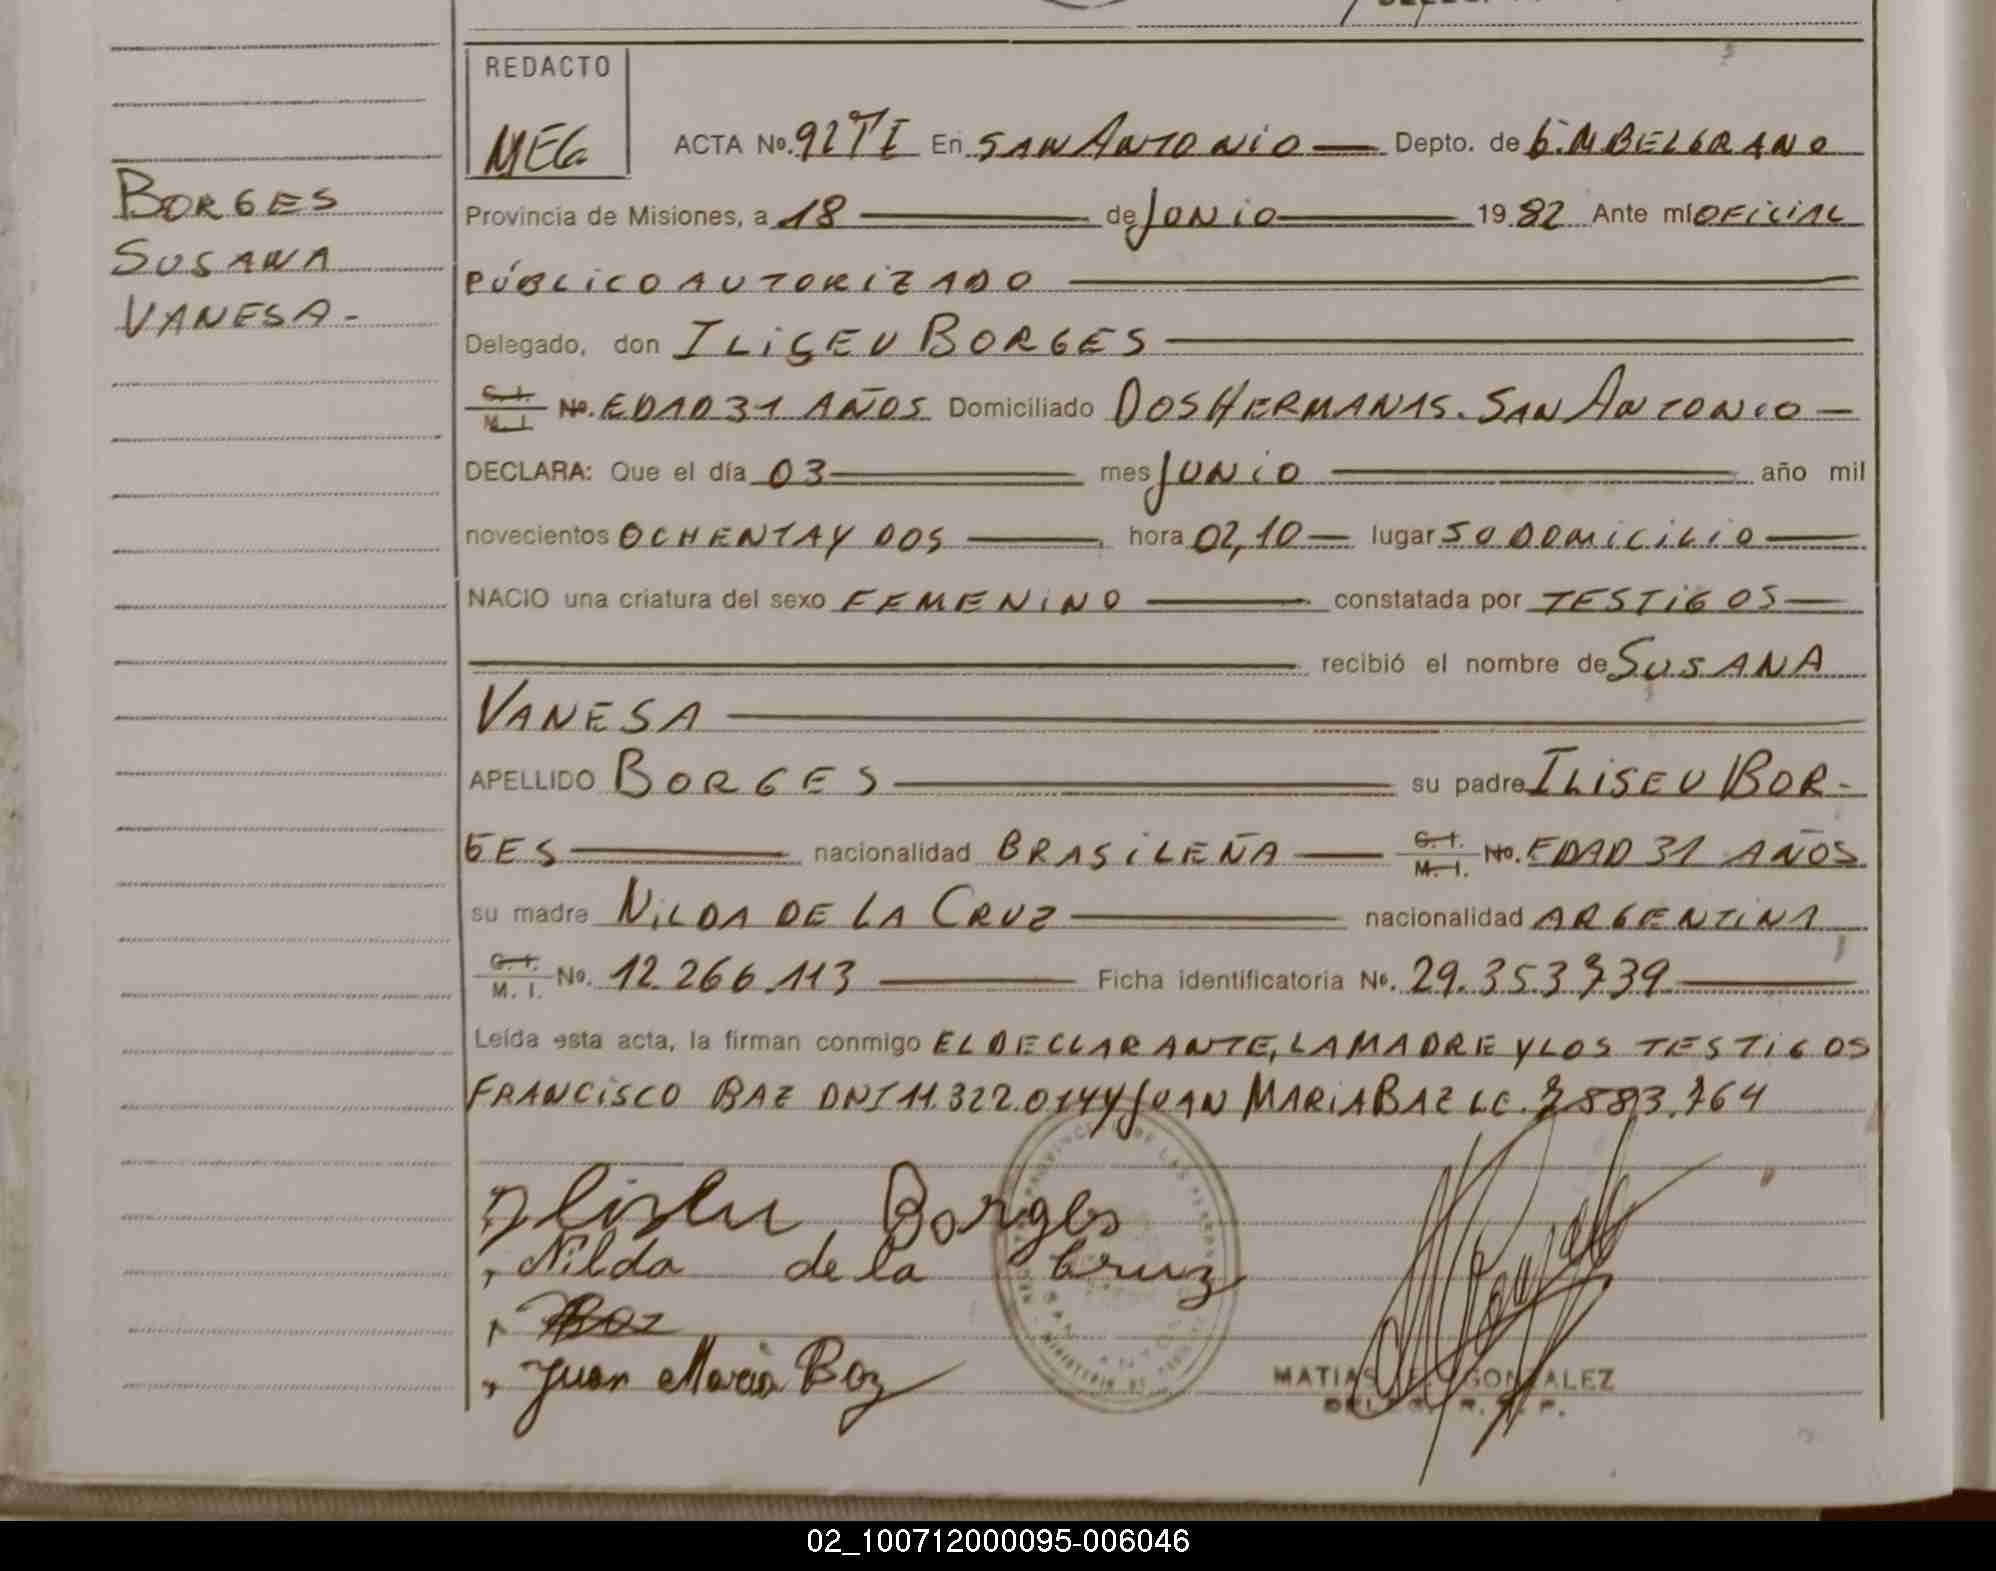 REDACTO
MEG
ACTA No. 92 TI En SAN ANTONIO Depto. de G. M BELGRANO
BORGES
SUSANA
VANESA -
Provincia de Misiones, a 18 de JUNIO 19 82 Ante mí OFICIAL
PÚBLICO AUTORIZADO
Delegado, don ILISEU BORGES
C. I. M. I. No. EDAD 31 AÑOS Domiciliado DOS HERMANAS. SAN ANTONIO
DECLARA: Que el día 03 mes JUNIO año mil
novecientos OCHENTA Y DOS hora 02,10 lugar SU DOMICILIO
NACIO una criatura del sexo FEMENINO constatada por TESTIGOS
recibió el nombre de SUSANA
VANESA
APELLIDO BORGES su padre ILISEU BOR-
GES nacionalidad BRASILEÑA C. I. M. I. No. EDAD 31 AÑOS
su madre NILDA DE LA CRUZ nacionalidad ARGENTINA
C. I. M. I. No. 12.266.113 Ficha identificatoria No. 29.353.739
Leída esta acta, la firman conmigo EL DECLARANTE, LA MADRE Y LOS TESTIGOS
FRANCISCO BAZ DNI 11.322.014 Y JUAN MARIA BAZ LE. 7.583.764
Iliseu Borges
Nilda de la Cruz
Baz
Juan Maria Baz
MATIAS GONZALEZ
02_100712000095-006046